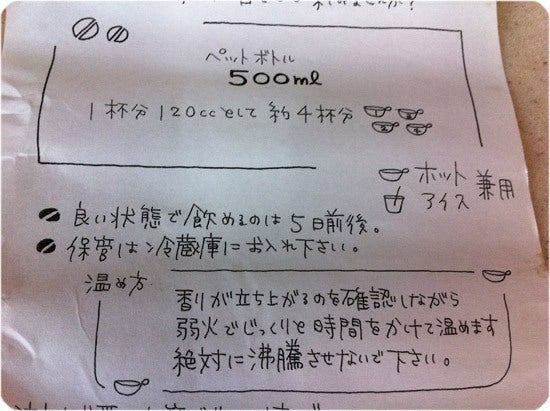 ペットボトル
500ml
1杯分120ccとして約4杯分 1 2 3 4
ホット
アイス
兼用
良い状態で飲めるのは5日前後。
保管は冷蔵庫にお入れ下さい。
温め方
香りが立ち上がるのを確認しながら
弱火でじっくりと時間をかけて温めます
絶対に沸騰させないで下さい。